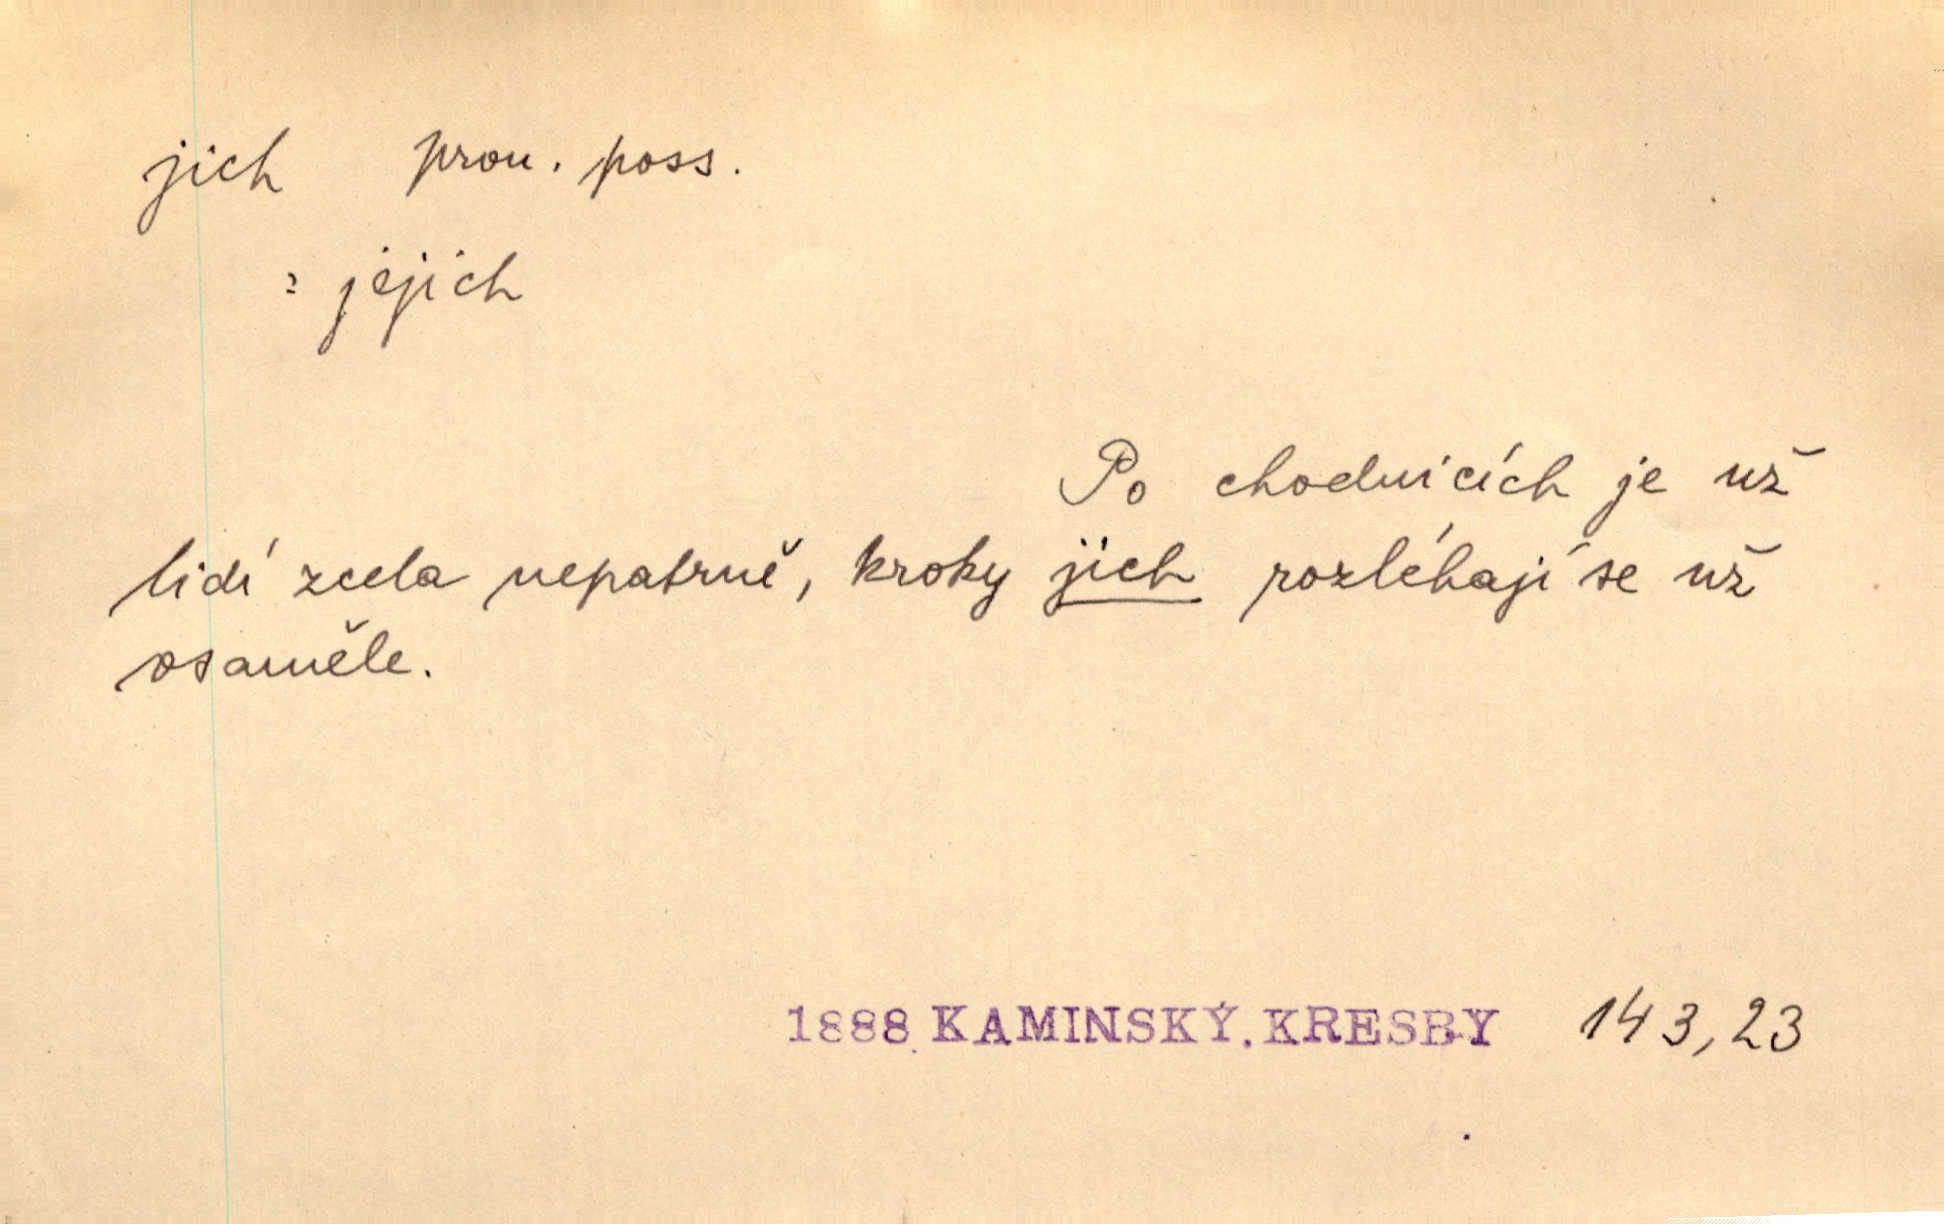 jich pron. poss.
= jejich
Po chodnicích je už
lidí zcela nepatrně, kroky jich rozléhají se už
osaměle.
1888 KAMINSKÝ. KRESBY 143,23